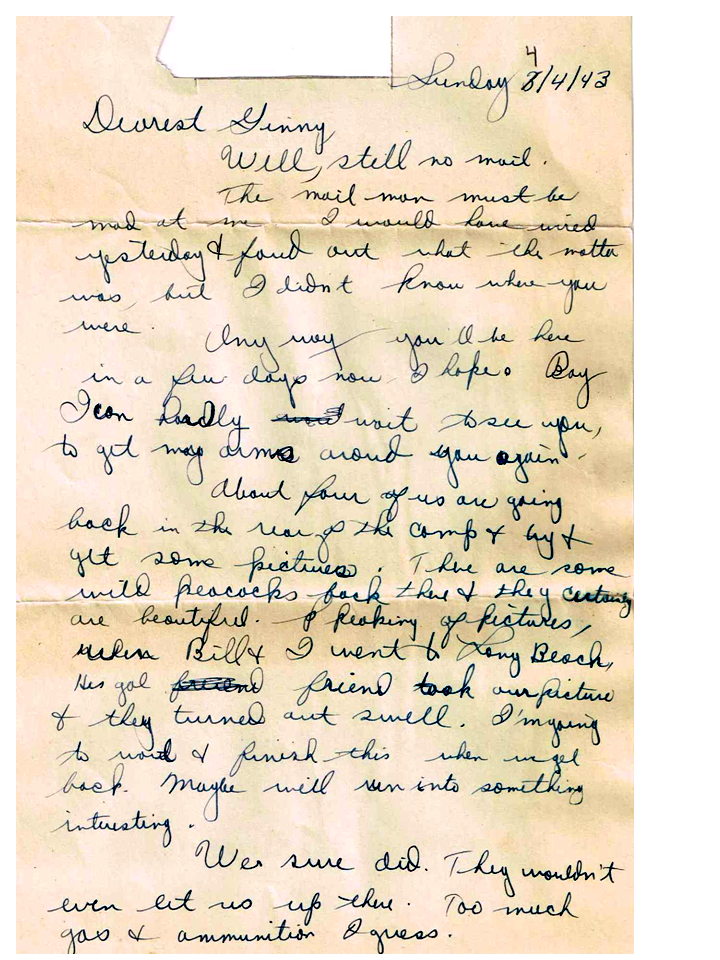 Sunday 4/4/43
Dearest Ginny,
Well, still no mail.
The mail man must be
mad at me. I would have wired
yesterday & foud out what the matter
was, but I didn't know where you
were. Any way you'll be here
in a few days now I hope. Boy
I can hardly wait to see you,
to get my arms aroud you again.
About four of us are going
back in the rear of the camp & try &
get some pictures. There are some
wild peacocks back there & they certainly
are beautiful. Speaking of pictures,
when Bill & I went to Long Beach,
His gal friend took our picture
& they turned out swell. I'm going
to wait & finish this when we get
back. Maybe we'll run into something
interesting.
We sure did. They wouldn't
even let us up there. Too much
gas & ammunition I guess.